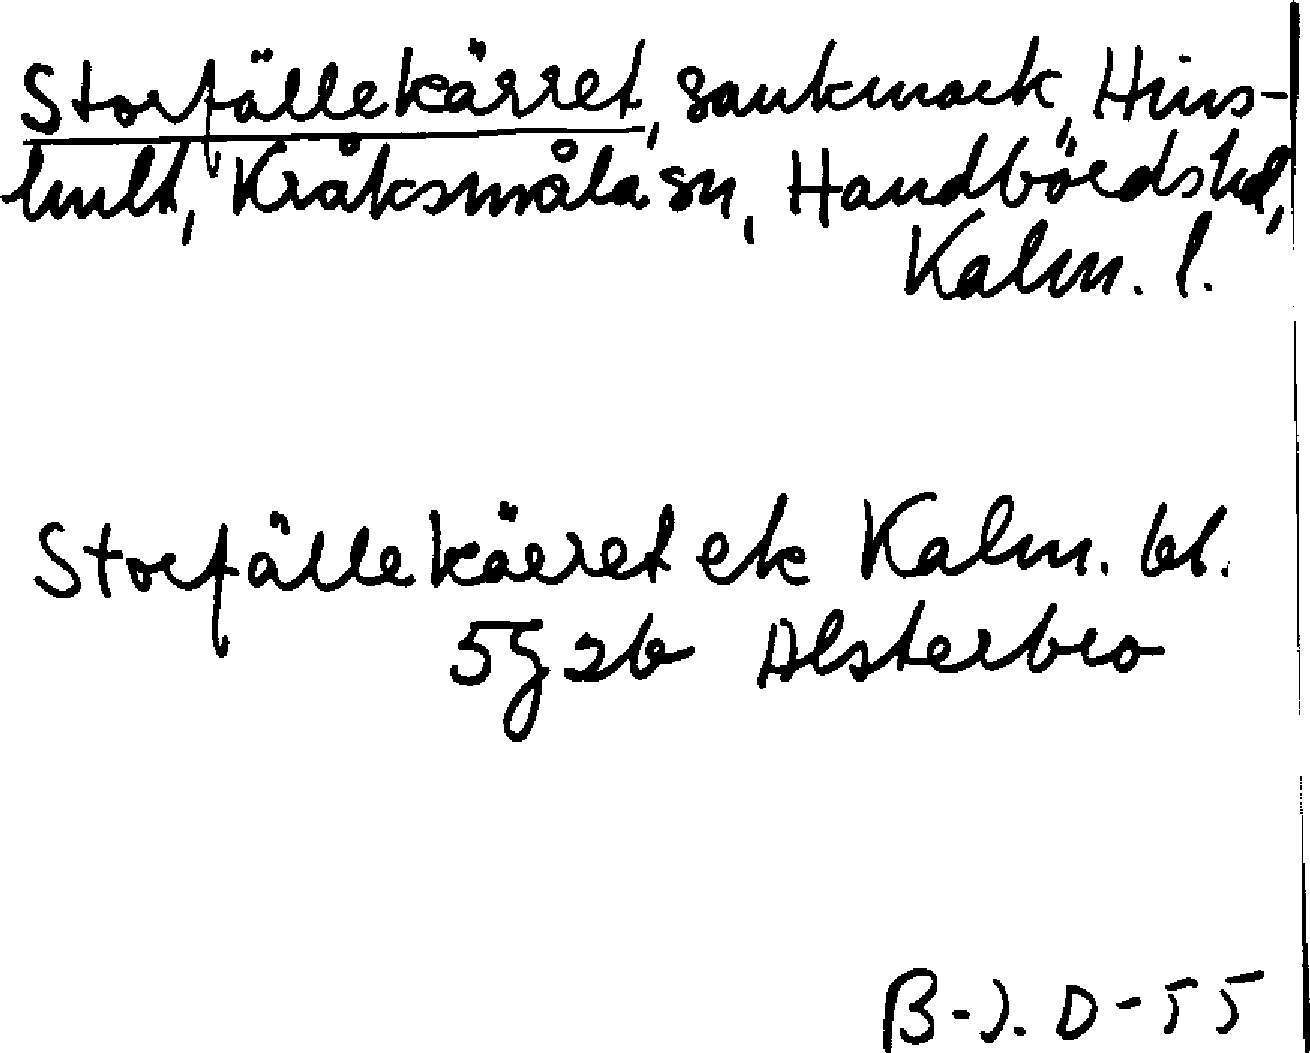 Storfällekärret, sankmark, Hins-
hult, Kråksmåla sn, Handbördshd,
Kalm. l.
Storfällekärret ek Kalm. bl.
5g 2b Alsterbro
B-J. D-55